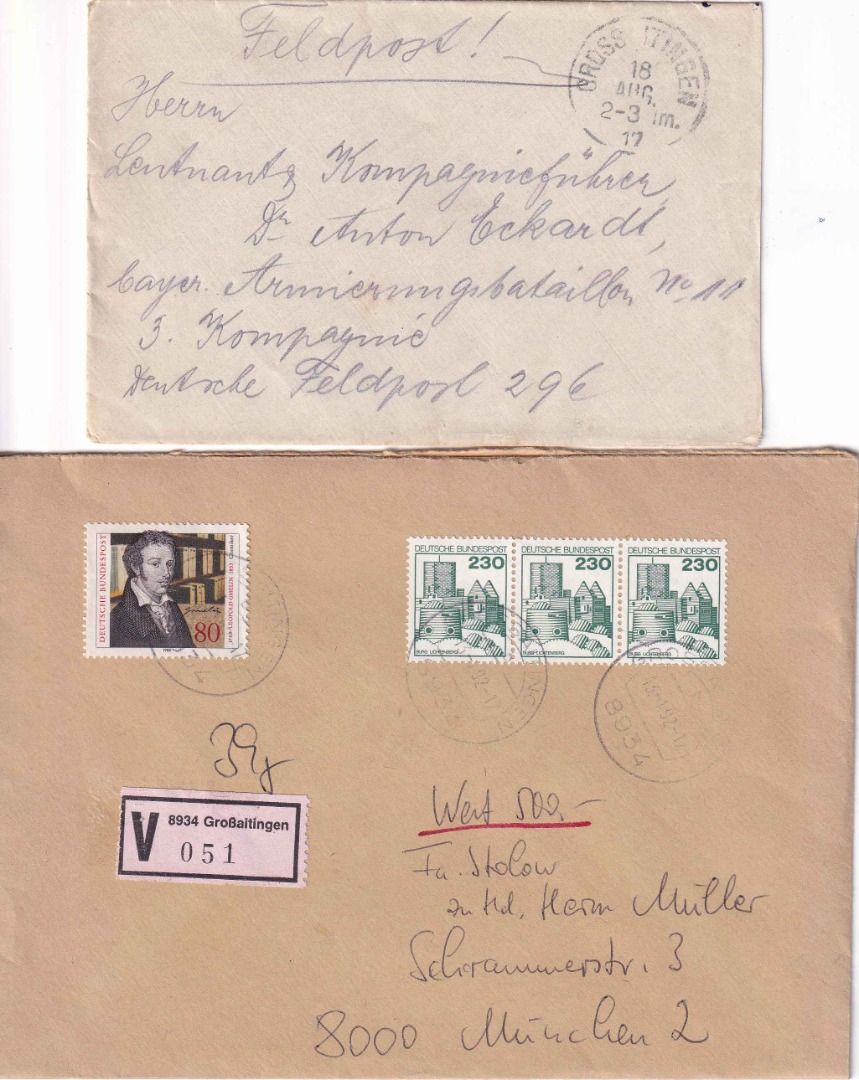 Feldpost!
GROSS ITINGEN
18
AUG.
2-3 m.
17
Herrn
Leutnant & Kompagnieführer
Dr Anton Eckardt,
bayer. Armierungsbataillon No 11
3. Kompagnie
Deutsche Feldpost 296
DEUTSCHE BUNDESPOST
80
DEUTSCHE BUNDESPOST
230
BURG LICHTENBERG
DEUTSCHE BUNDESPOST
230
BURG LICHTENBERG
DEUTSCHE BUNDESPOST
230
BURG LICHTENBERG
8934
39g
V 8934 Großaitingen
051
Wert 500,-
Fa. Stolow
zu Hd. Herrn Müller
Schrammerstr. 3
8000 München 2